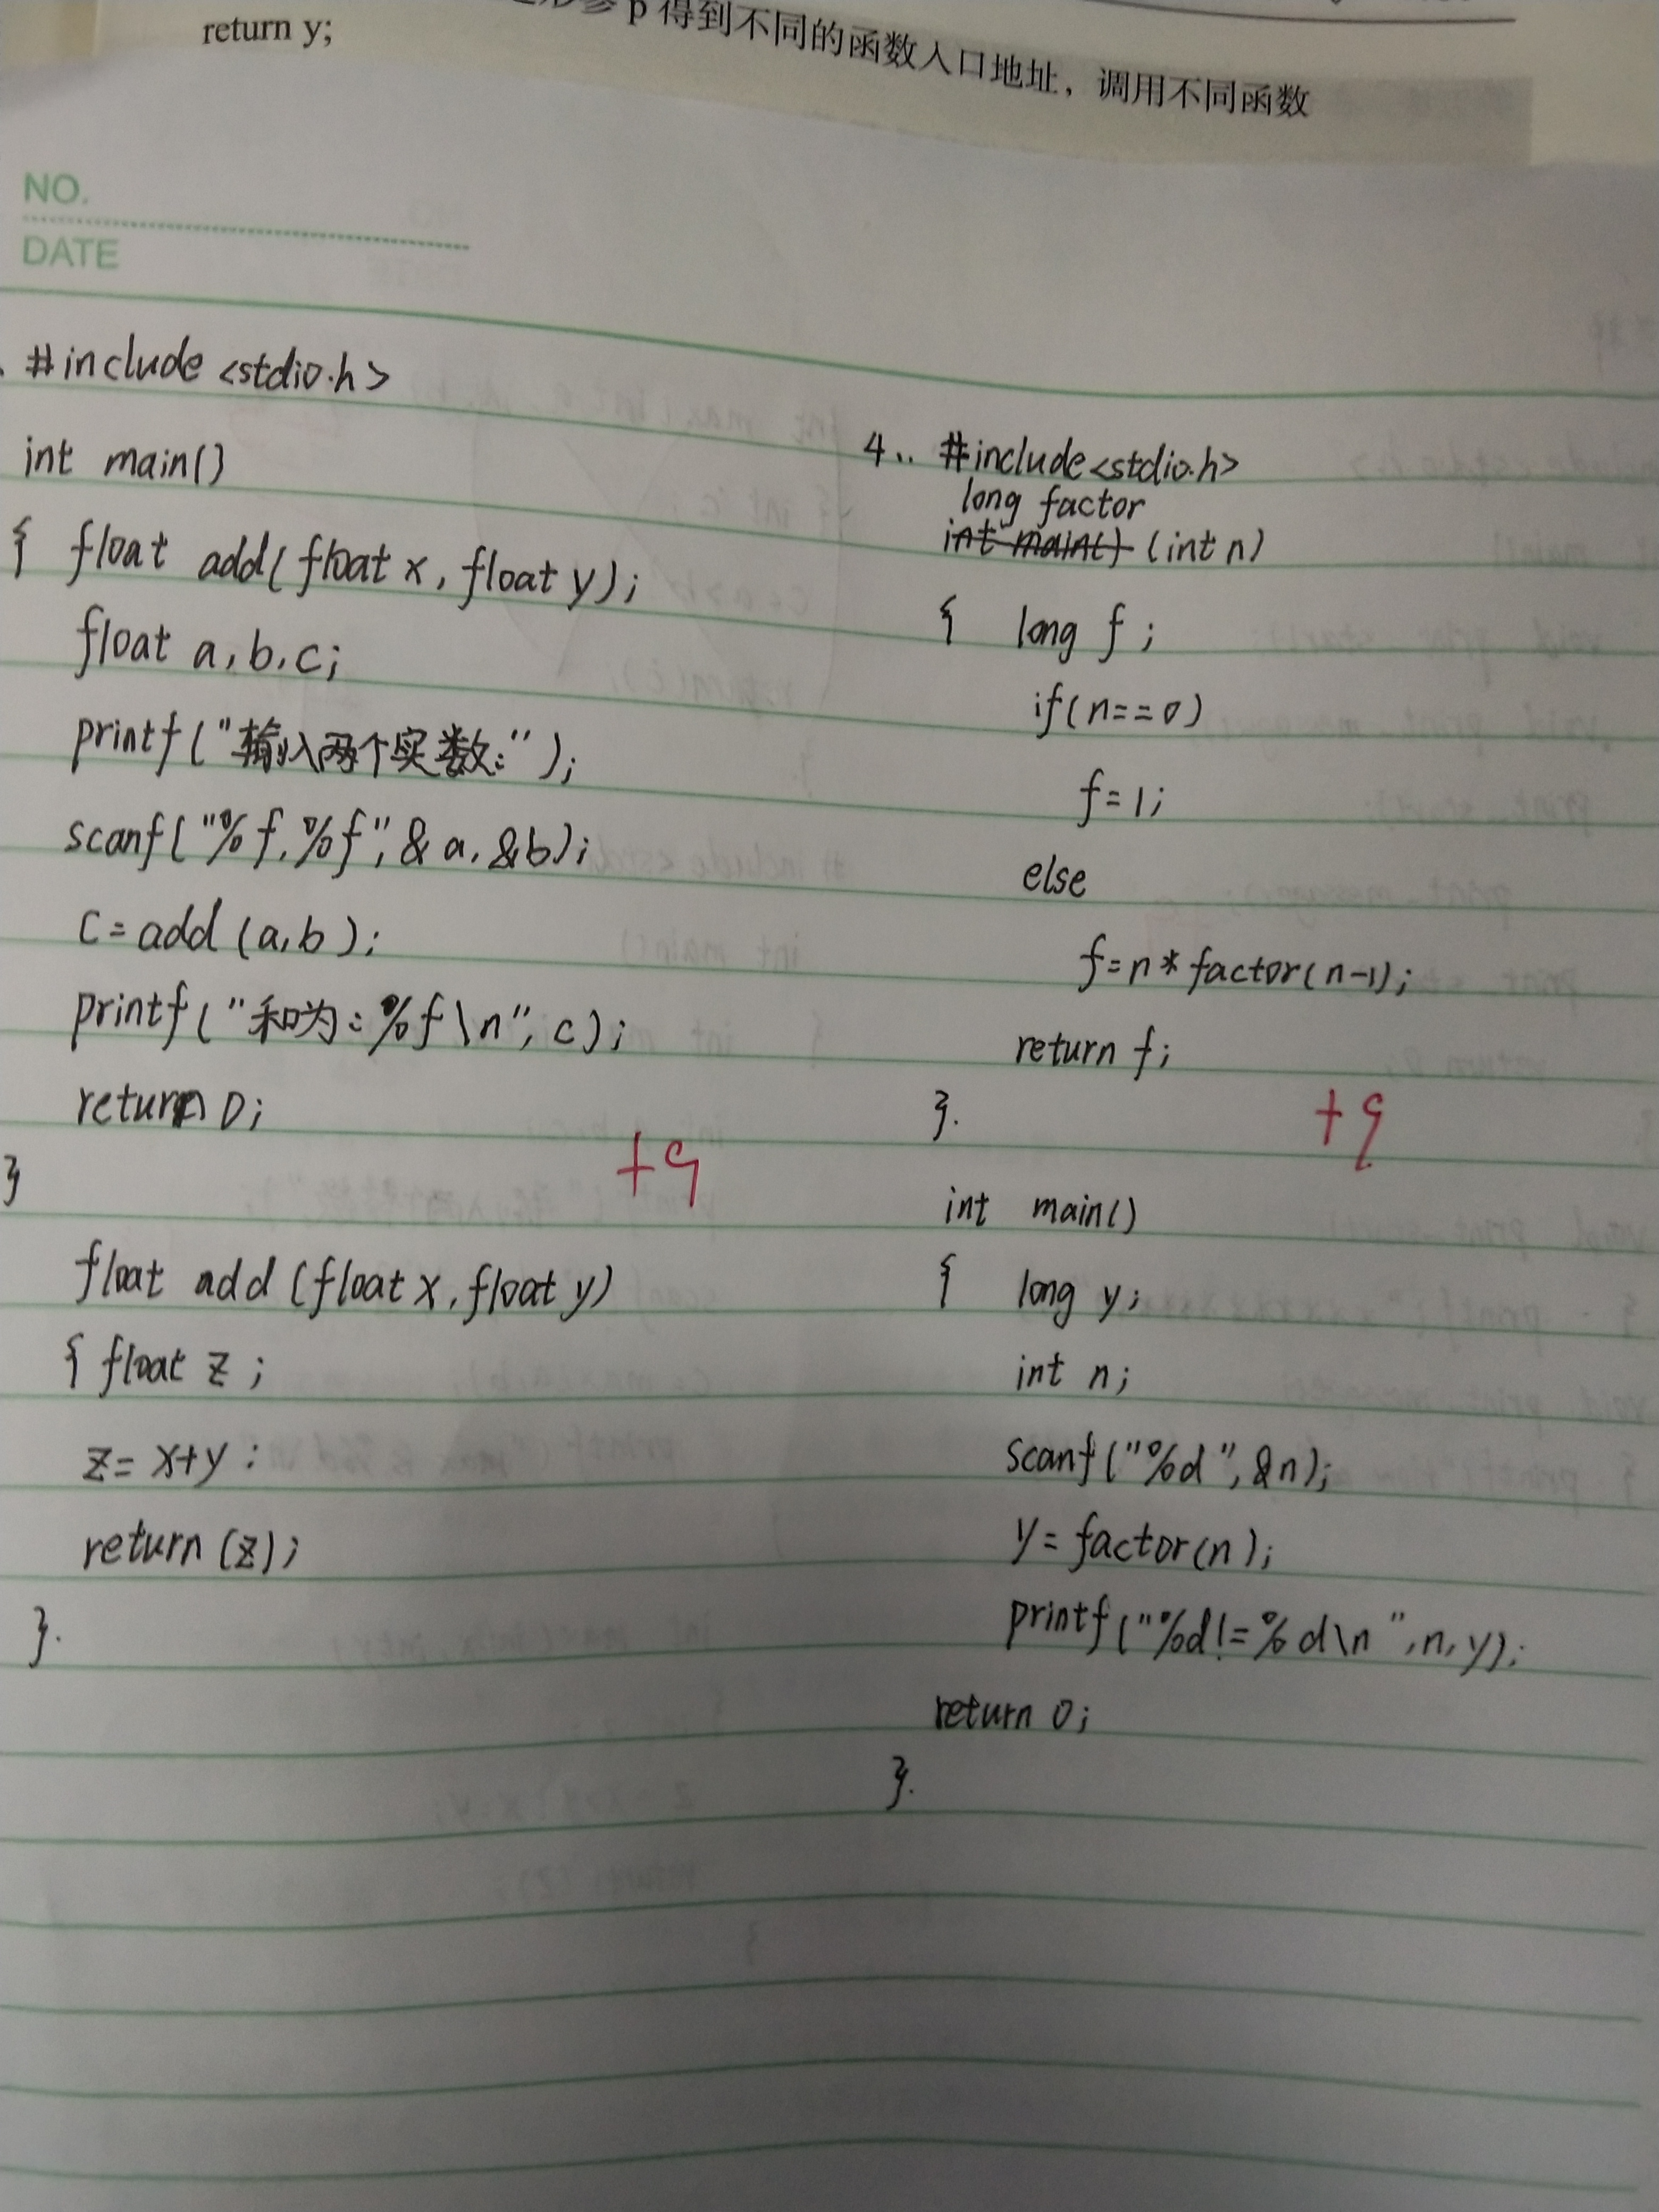 return y;
p 得到不同的函数入口地址，调用不同函数
NO.
DATE
#include <stdio.h>
int main()
{ float add(float x, float y);
float a, b, c;
printf("输入两个实数:");
scanf("%f,%f",&a,&b);
c=add(a,b);
printf("和为:%f\n",c);
return 0;
}
+9
float add (float x, float y)
{ float z;
z=x+y:
return (z);
}.
4.. #include<stdio.h>
long factor
int main() (int n)
{ long f;
if(n==0)
f=1;
else
f=n*factor(n-1);
return f;
}.
+9
int main()
{ long y;
int n;
scanf("%d",&n);
y=factor(n);
printf("%d!=%d\n",n,y);
return 0;
}.